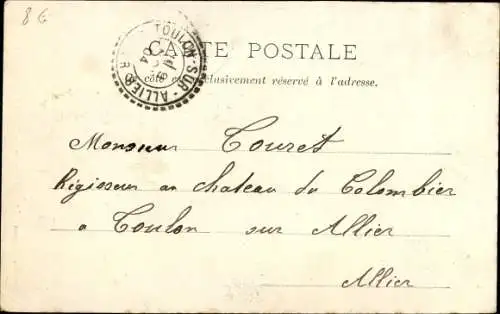 86
CARTE POSTALE
TOULON-SUR-ALLIER
côté exclusivement réservé à l'adresse.
Monsieur Touret
Régisseur au chateau du Colombier
a Toulon sur Allier
Allier